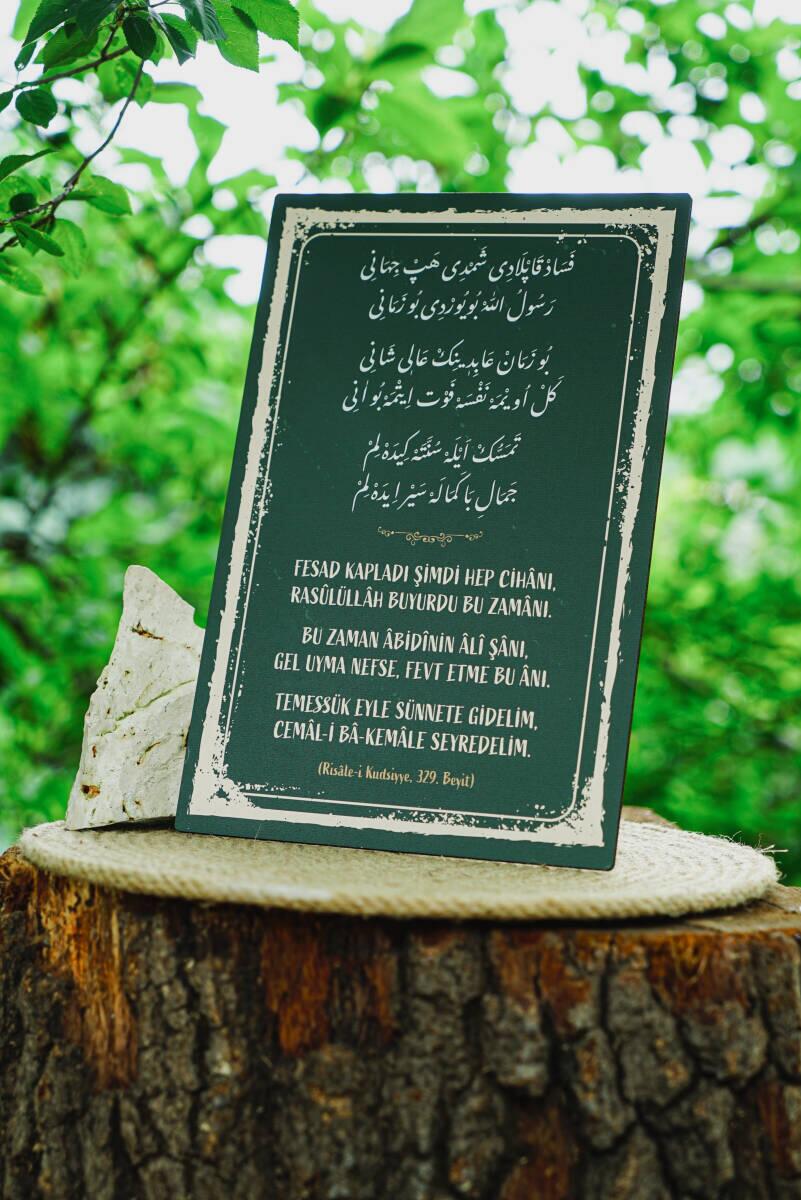 فَسَادْ قَاپْلَادِى شِمْدِى هَپْ جِهَانِى
رَسُولُ اللّٰهْ بُويُورْدِى بُو زَمَانِى
بُو زَمَانْ عَابِدِينِكْ عَالِى شَانِى
كَلْ اُويْمَهْ نَفْسَهْ فَوْت اِيتْمَهْ بُو اٰنِى
تَمَسُّكْ اَيْلَهْ سُنَّتَهْ كِيدَهْ لِمْ
جَمَالِ بَا كَمَالَهْ سَيْر اِيدَهْ لِمْ
FESAD KAPLADI ŞİMDİ HEP CİHÂNI,
RASÛLÜLLÂH BUYURDU BU ZAMÂNI.
BU ZAMAN ÂBİDÎNİN ÂLÎ ŞÂNI,
GEL UYMA NEFSE, FEVT ETME BU ÂNI.
TEMESSÜK EYLE SÜNNETE GİDELİM,
CEMÂL-İ BÂ-KEMÂLE SEYREDELİM.
(Risâle-i Kudsiyye, 329. Beyit)